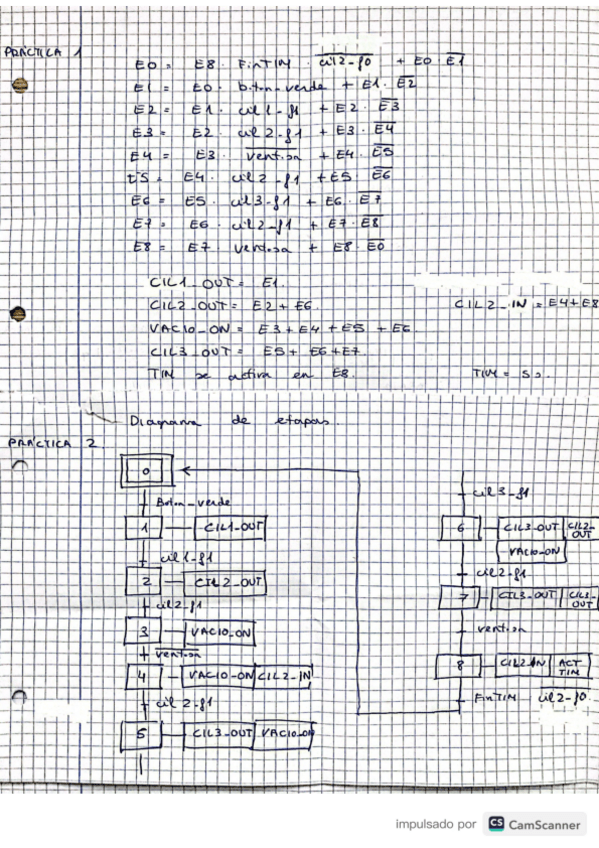 PRÁCTICA 1
E0 = E8 · FinTIM · c̅i̅l̅2̅-̅f̅0̅ + E0 · E̅1̅
E1 = E0 · boton-verde + E1 · E̅2̅
E2 = E1 · cil1-f1 + E2 · E̅3̅
E3 = E2 · cil2-f1 + E3 · E̅4̅
E4 = E3 · v̅e̅n̅t̅o̅s̅a̅ + E4 · E̅5̅
E5 = E4 · cil2-f1 + E5 · E̅6̅
E6 = E5 · cil3-f1 + E6 · E̅7̅
E7 = E6 · cil2-f1 + E7 · E̅8̅
E8 = E7 · ventosa + E8 · E̅0̅
CIL1_OUT = E1.
CIL2_OUT = E2 + E6. CIL2_IN = E4+E8
VACIO_ON = E3 + E4 + E5 + E6.
CIL3_OUT = E5 + E6 + E7.
TIM se activa en E8. TIM = 5s.
Diagrama de etapas.
PRÁCTICA 2
0
Boton-verde
1 CIL1-OUT
cil1-f1
2 CIL2_OUT
cil2-f1
3 VACIO_ON
v̅e̅n̅t̅o̅s̅a̅
4 VACIO-ON CIL2-IN
cil2-f1
5 CIL3-OUT VACIO_ON
cil3-f1
6 CIL3_OUT CIL2-OUT
VACIO-ON
cil2-f1
7 CIL3-OUT OUT
ventosa
8 CIL2-IN ACT TIM
FinTIM · c̅i̅l̅2̅-̅f̅0̅.
impulsado por CS CamScanner